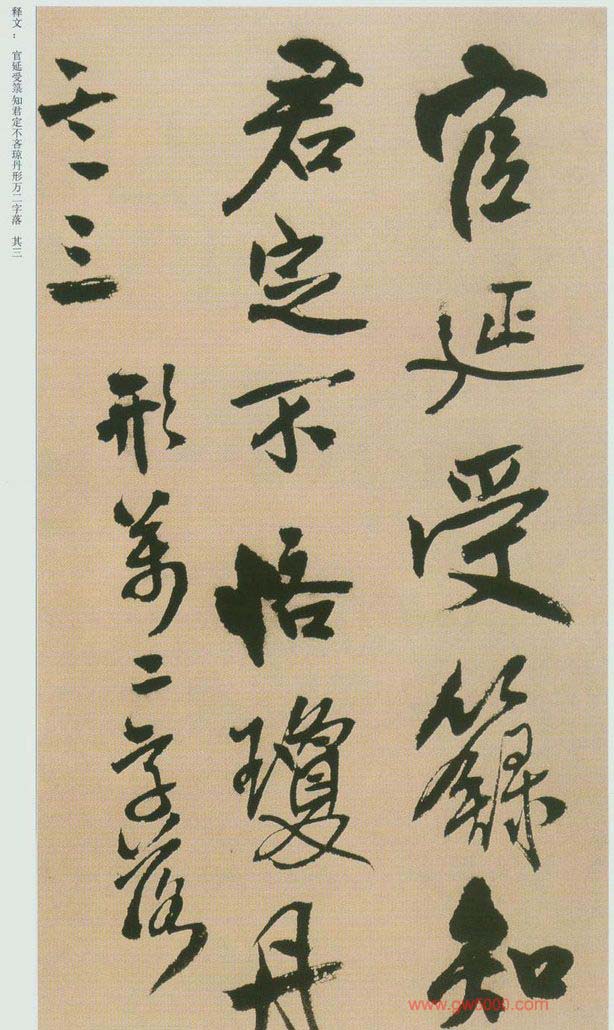 官延受籙知
君定不悋瓊丹
形萬二字落
其三
释文： 官延受箓 知君定不吝琼丹形万二字落 其三